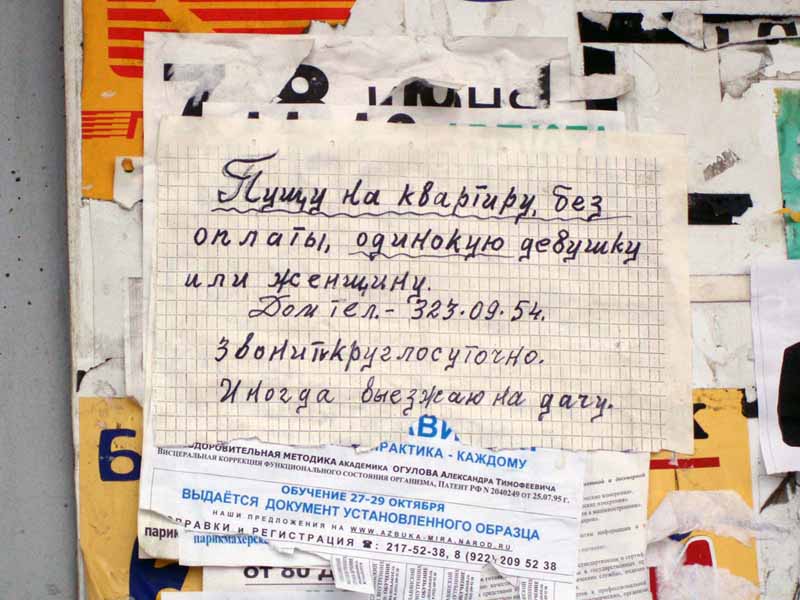 7 8 июня
Пущу на квартиру, без
оплаты, одинокую девушку
или женщину.
Дом тел. - 323·09·54.
Звонить круглосуточно.
Иногда выезжаю на дачу.
ПРАКТИКА - КАЖДОМУ
ОЗДОРОВИТЕЛЬНАЯ МЕТОДИКА АКАДЕМИКА ОГУЛОВА АЛЕКСАНДРА ТИМОФЕЕВИЧА
ВИСЦЕРАЛЬНАЯ КОРРЕКЦИЯ ФУНКЦИОНАЛЬНОГО СОСТОЯНИЯ ОРГАНИЗМА, ПАТЕНТ РФ N 2040249 ОТ 25.07.95 г.
ОБУЧЕНИЕ 27-29 ОКТЯБРЯ
ВЫДАЁТСЯ ДОКУМЕНТ УСТАНОВЛЕННОГО ОБРАЗЦА
НАШИ ПРЕДЛОЖЕНИЯ НА WWW.AZBUKA-MIRA.NAROD.RU
СПРАВКИ И РЕГИСТРАЦИЯ ☎: 217-52-38, 8 (922) 209 52 38
парикмахерск
от 80 д